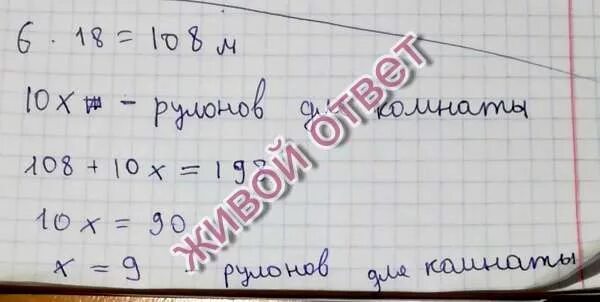 6 · 18 = 108 м
10x - рулонов для комнаты
108 + 10x = 198
10x = 90
x = 9 рулонов для комнаты
ЖИВОЙ ОТВЕТ